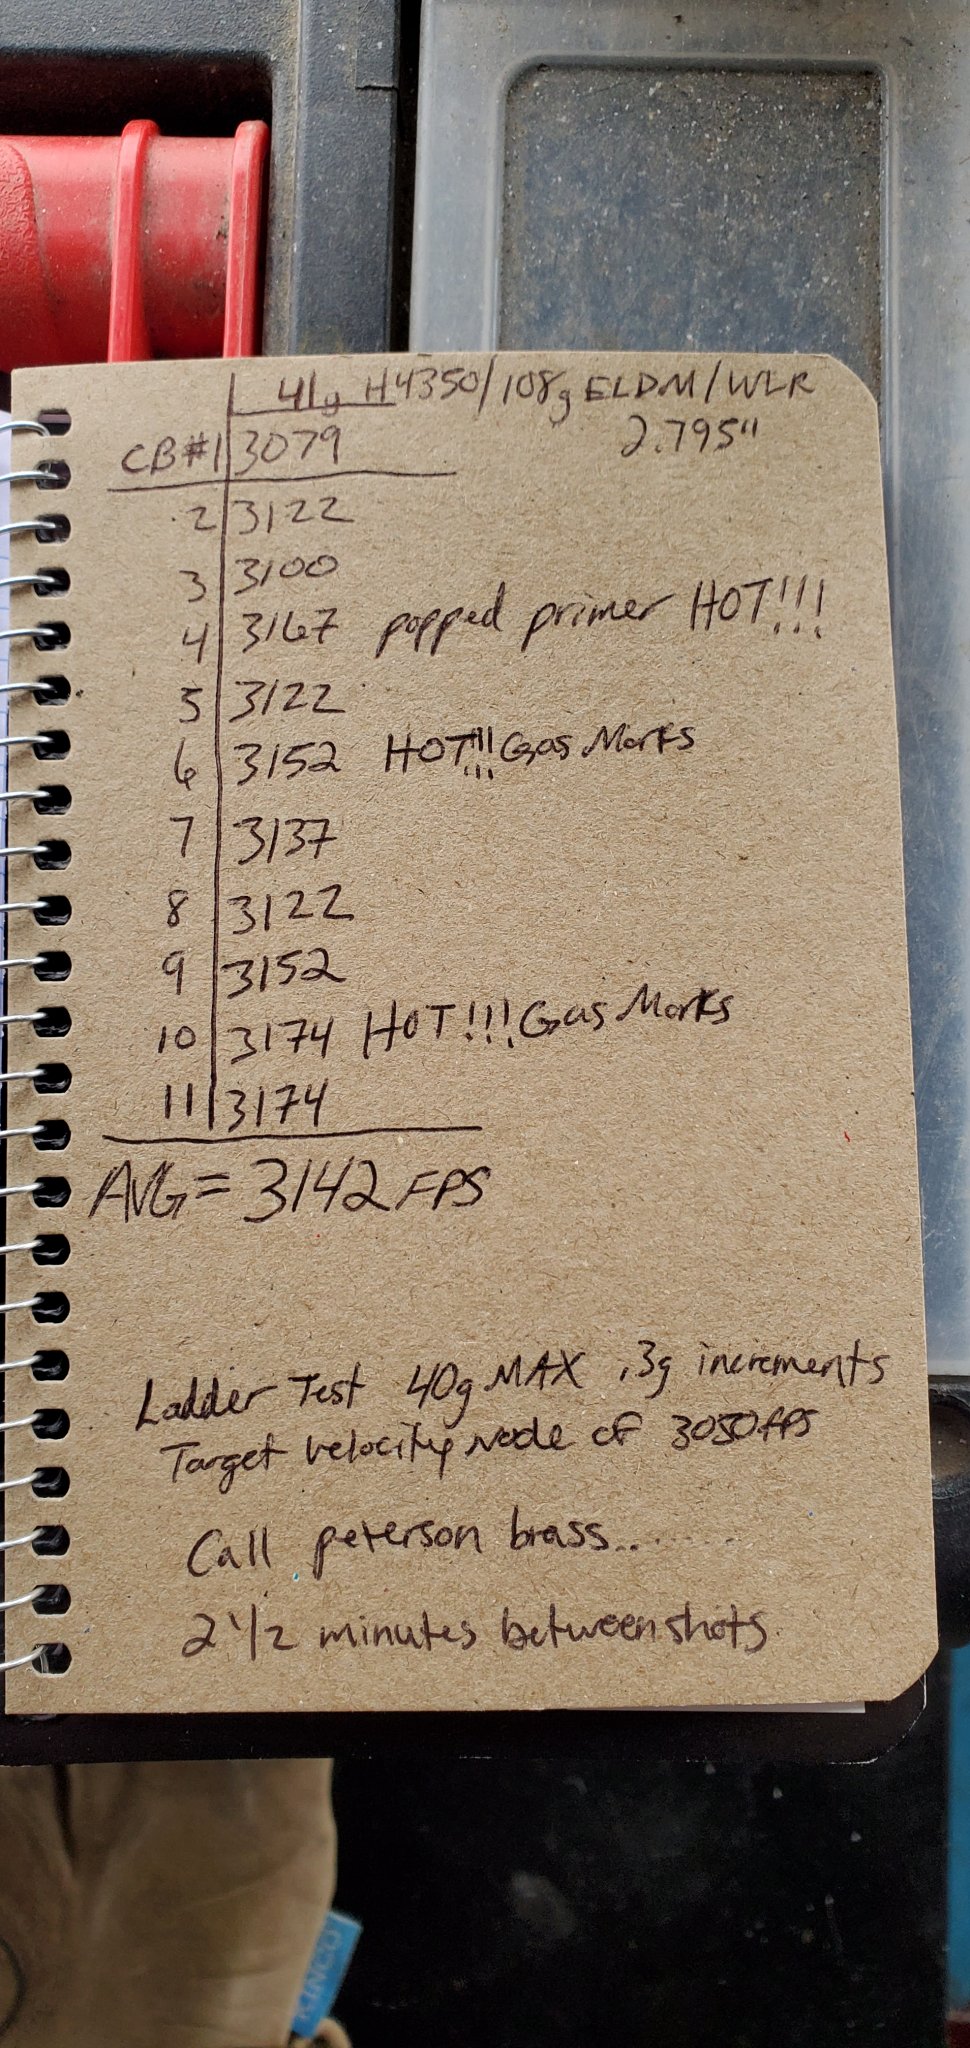 41g H4350/108g ELDM/WLR
CB#1 3079 2.795"
2 3122
3 3100
4 3167 popped primer HOT!!!
5 3122
6 3152 HOT!!! Gas Marks
7 3137
8 3122
9 3152
10 3174 HOT!!! Gas Marks
11 3174
AVG = 3142 FPS
Ladder Test 40g MAX .3g increments
Target velocity Node of 3050 fps
Call peterson brass........
2 1/2 minutes between shots
KINCO